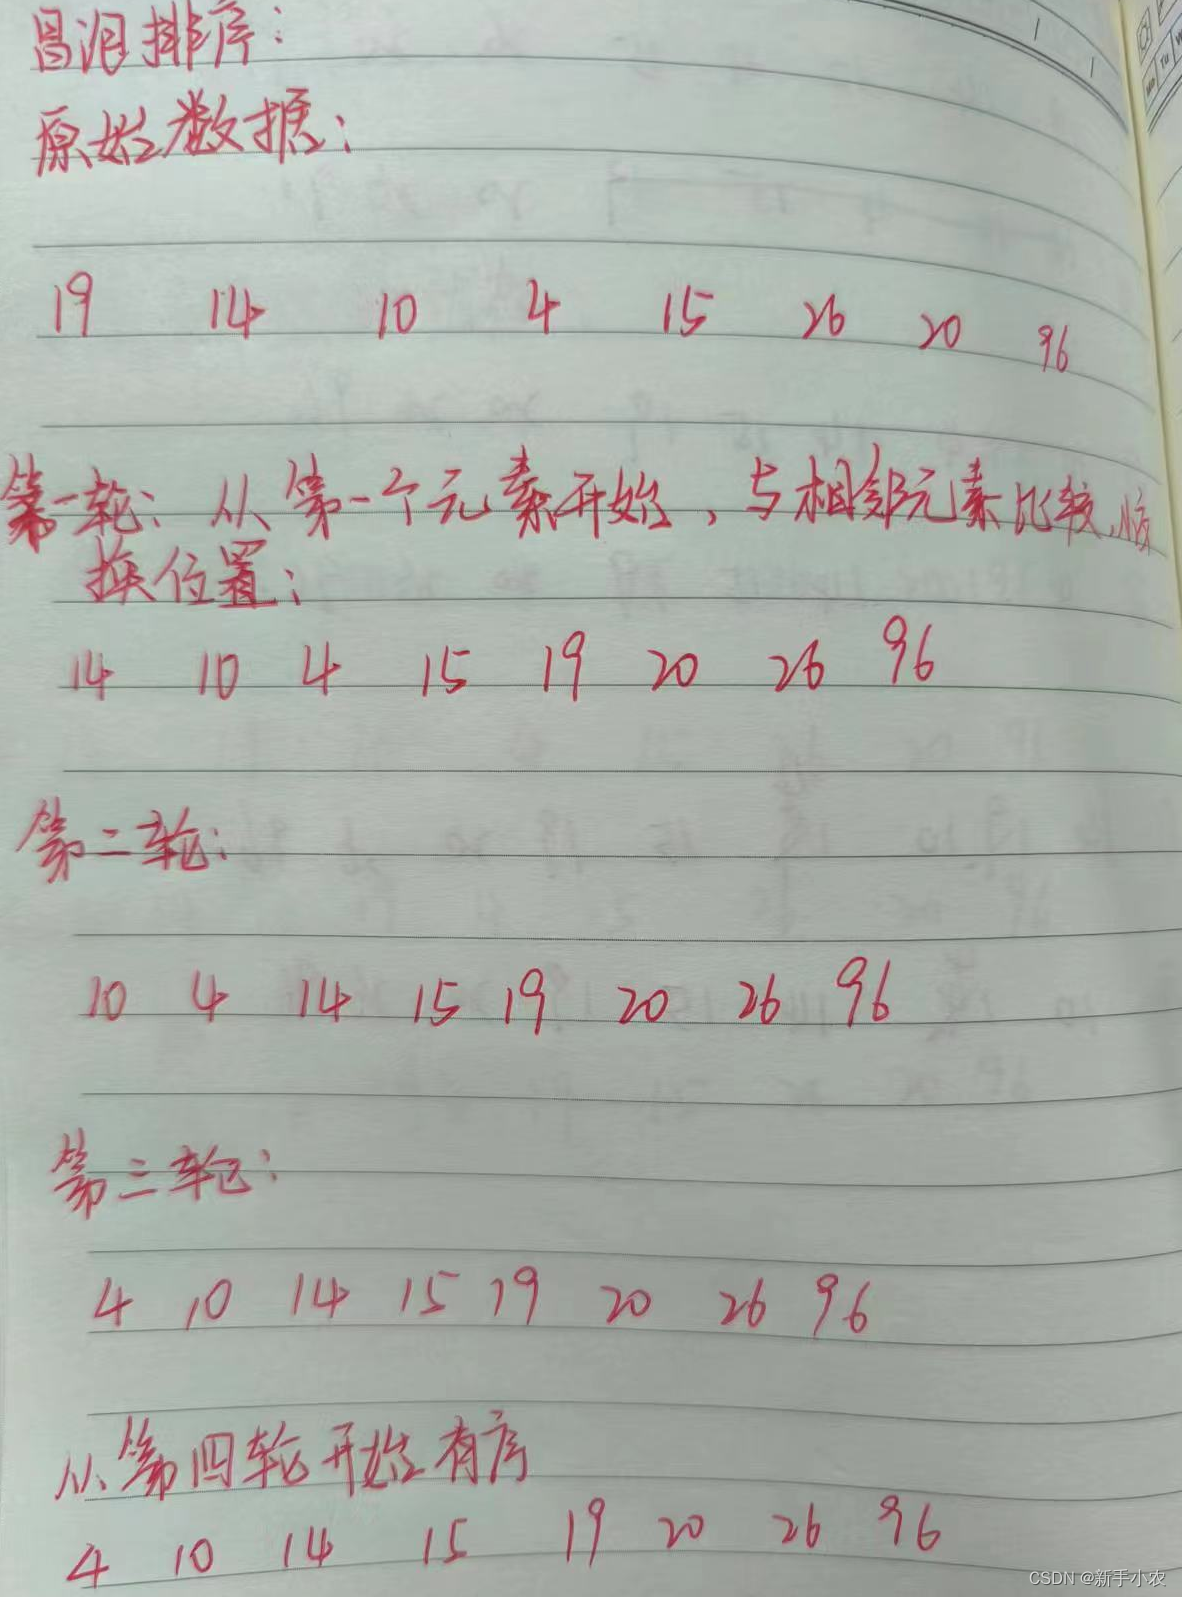 冒泡排序:
原始数据:
19 14 10 4 15 26 20 96
第一轮: 从第一个元素开始,与相邻元素比较,
换位置:
14 10 4 15 19 20 26 96
第二轮:
10 4 14 15 19 20 26 96
第三轮:
4 10 14 15 19 20 26 96
从第四轮开始有序
4 10 14 15 19 20 26 96
CSDN @新手小农